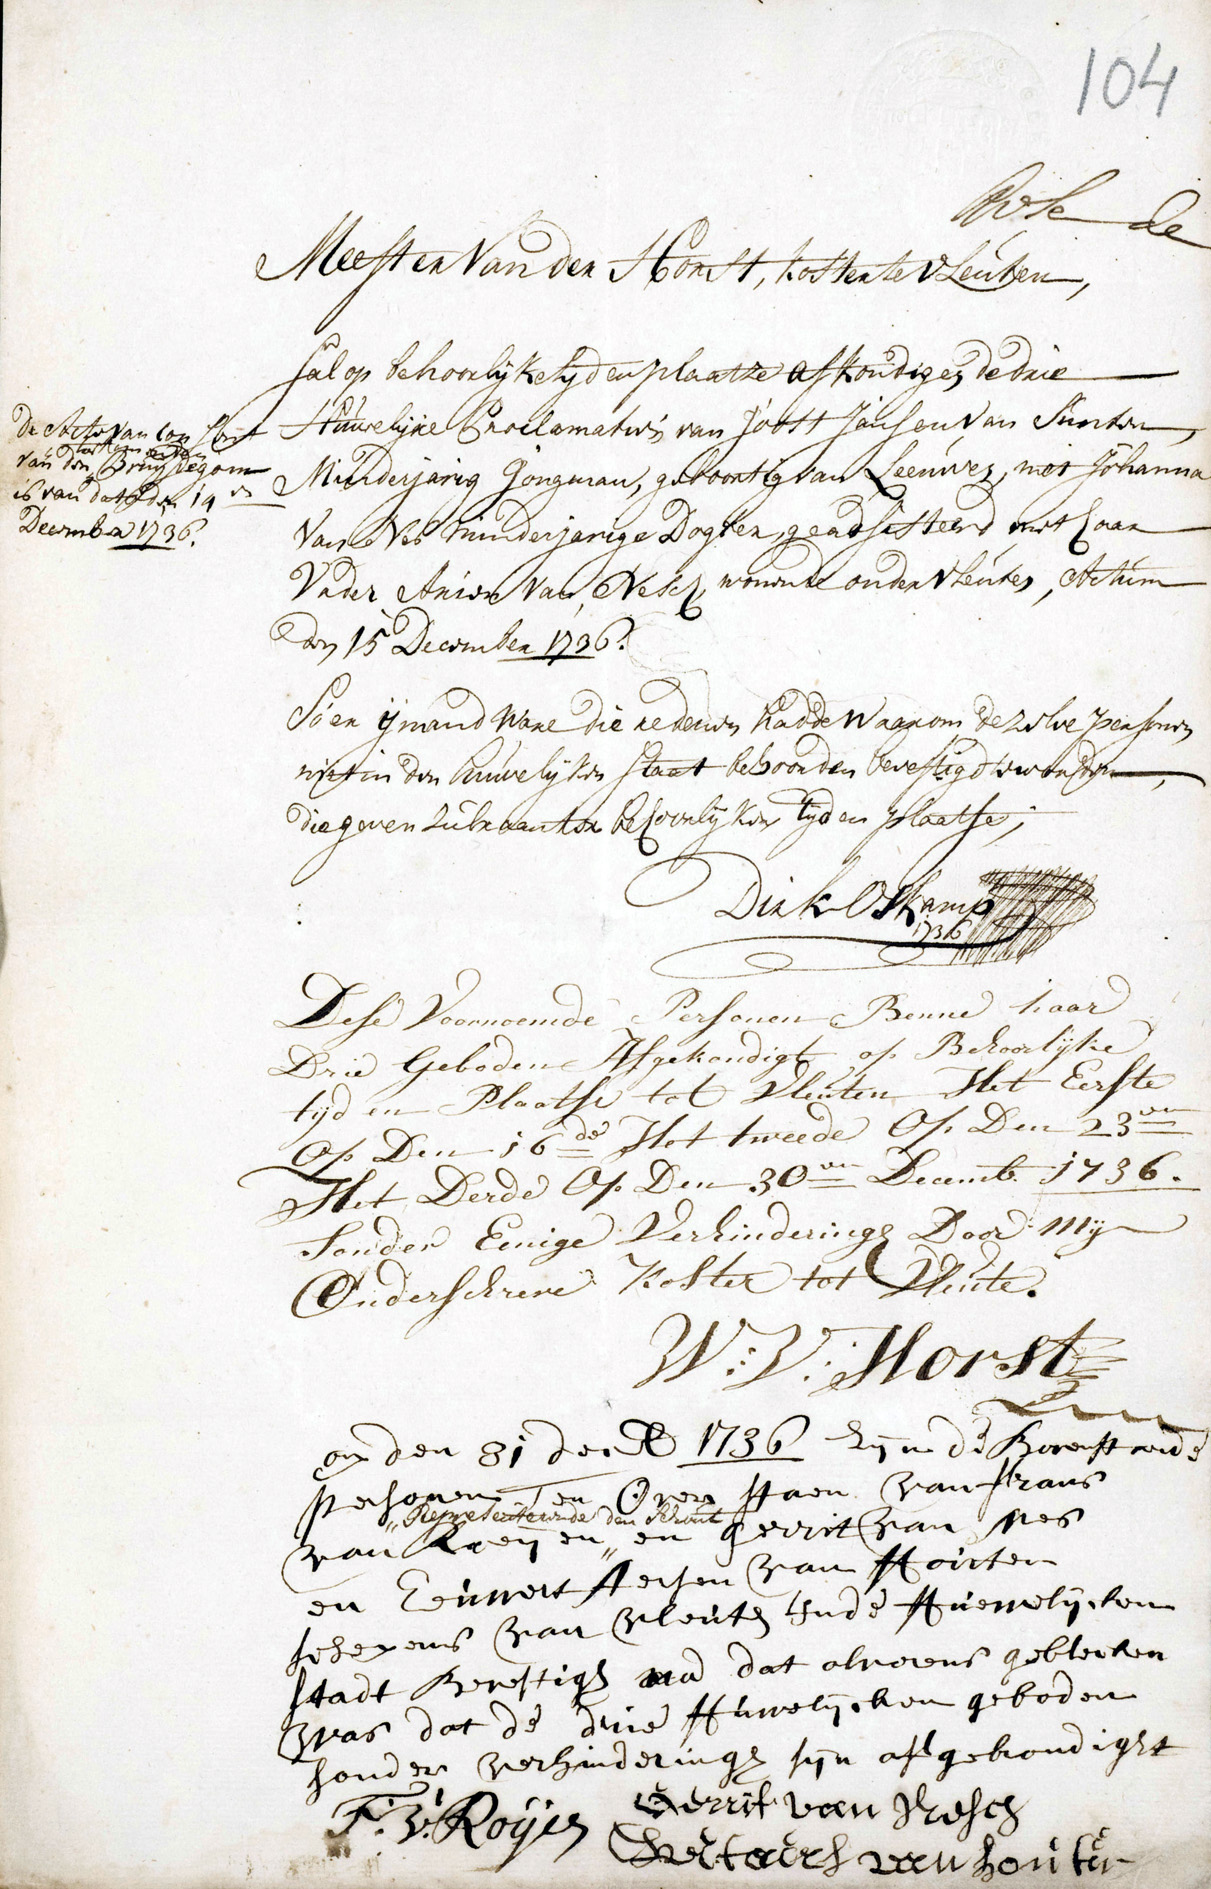 104
de
Meester Van der Horst, koster te Vleuten,
sal op behoorlyke tyd en plaatze afkondigen de drie
Huwelyke Proclamatien van Joost Jansen van
Minderjarig Jongman, geboortig van Leeuwen, met Johanna
van Nes minderjarige Dogter, geadsisteerd met haar
Vader Anton van Nesch, wonende onder Vleuten, Actum
den 15 December 1736.
De Acte van Consent
van den Bruydegom
is van dato den 14en
December 1736.
So er ymand ware die redenen hadde waarom dezelve persoonen
niet in den huwelyken staat behoorden bevestigd te worden,
die geven zulx aan ter behoorlyker tyd en plaatse;
Dirk Oskamp
1736
Dese Voornoemde Personen Benne haar
Drie Geboden Afgekondigt op Behoorlyke
tyd en Plaatse tot Vleuten Het Eerste
Op Den 16de Het tweede Op Den 23en
Het Derde Op Den 30en Decemb. 1736.
Sonder Eenige Verhinderingh Door Mij
Onderschreve Koster tot Vleute.
W: V: Horst
op den 31 decb 1736 sijn de bovenstaende
personen Ten Over staen van frans
"Representeerende den Schout
van Roeijen " en gerrit van Nes
en Teunert Aersen van Houten
schepens van vleuten Inde Huwelijcken
stadt Bevestigh na dat alvorens gebleeken
was dat de drie Huwelijcken geboden
sonder verhinderingh sijn afgekondight
F. V. Roijen
Gerrit van Nesch
van houten